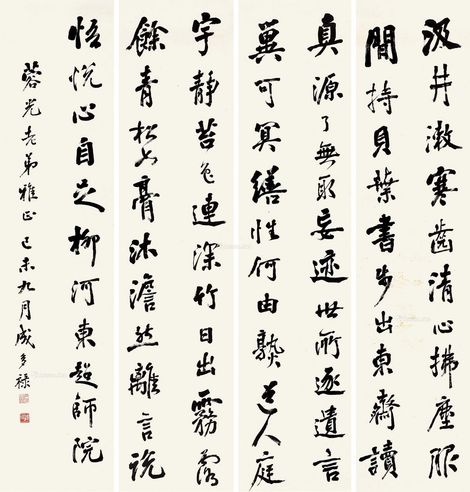 汲井漱寒齒清心拂塵服
閒持貝葉書步出東齋讀
真源了無取妄迹世所逐遺言
冀可冥繕性何由熟道人庭
宇靜苔色連深竹日出霧露
餘青松如膏沐澹然離言說
悟悅心自足柳河東超師院
蓉光老弟雅正 己未九月成多祿